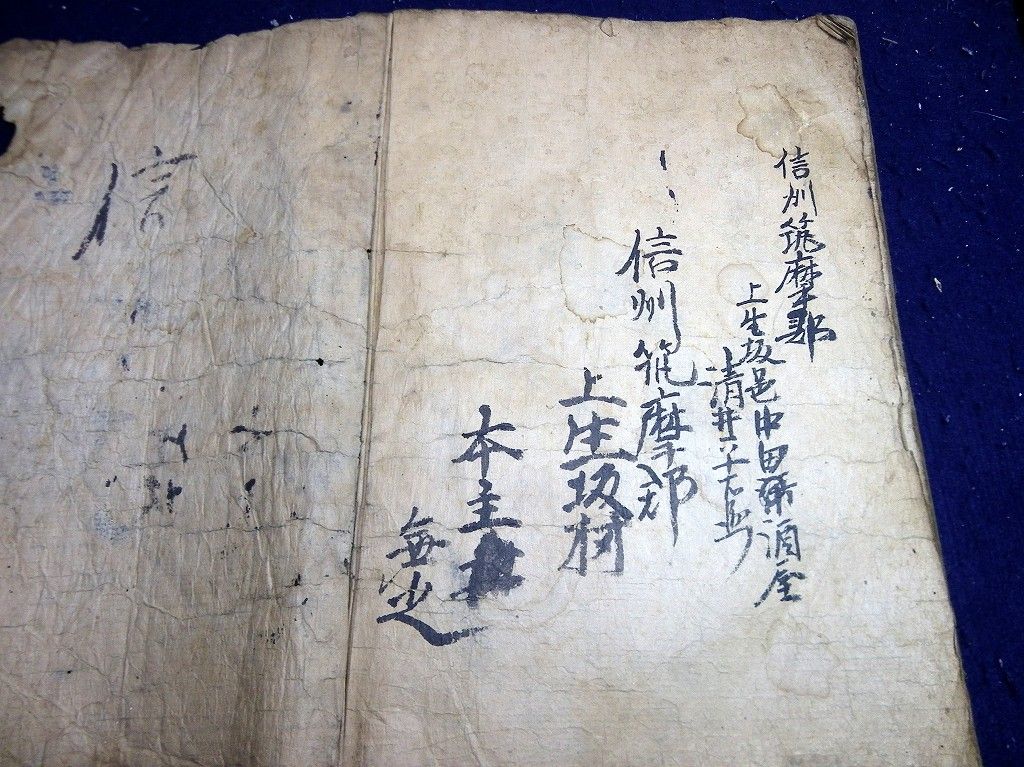 信州筑摩郡
上生坂邑中田 酒屋
清井
信州筑摩郡
上生坂村
本主
無
信